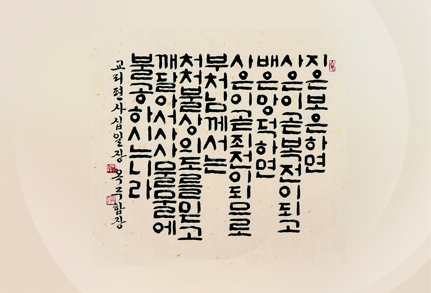 지은보은하면
사은이곧복전이되고
배은망덕하면
사은이곧죄전이되므로
부처님께서는
처처불상의도를믿고
깨달아서사사물물에
불공하시느니라
교리편사십일장